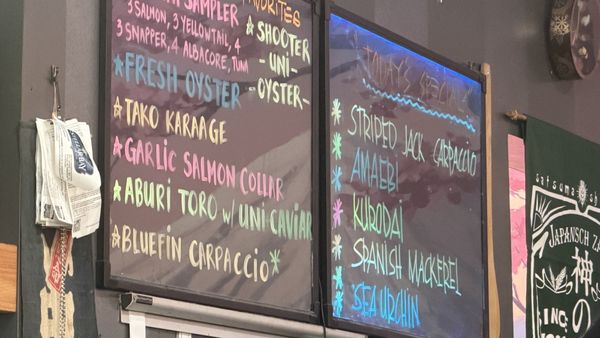 SAMPLER
3 SALMON, 3 YELLOWTAIL, 4
3 SNAPPER, 4 ALBACORE, TUNA
FRESH OYSTER
TAKO KARAAGE
GARLIC SALMON COLLAR
ABURI TORO w/ UNI CAVIAR
BLUEFIN CARPACCIO
FAVORITES
SHOOTER
- UNI -
- OYSTER -
TODAY'S SPECIALS
STRIPED JACK CARPACCIO
AMAEBI
KURODAI
SPANISH MACKEREL
SEA URCHIN
satsuma sh
JAPANSCH
神の
SINCE